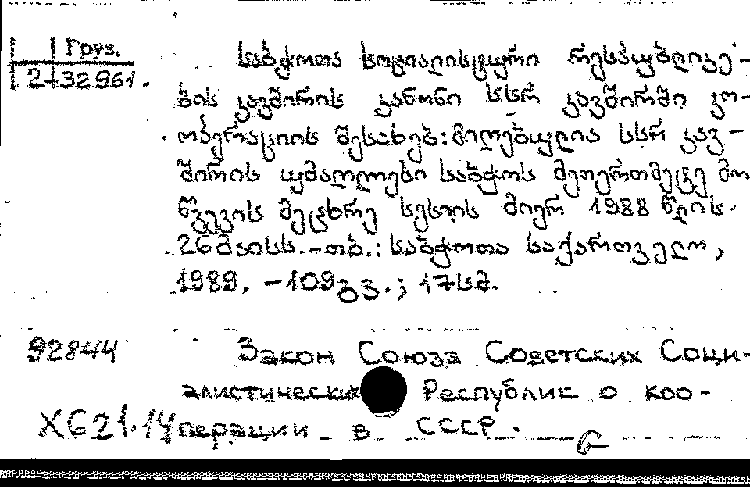 Груз.
2-32961.
საბჭოთა სოციალისტური რესპუბლიკე-
ბის კავშირის კანონი სსრ კავშირში კო-
ოპერაციის შესახებ: მიღებულია სსრ კავ-
შირის უმაღლესი საბჭოს მეთერთმეტე მო
წვევის მეცხრე სესიის მიერ 1988 წლის
26 მაისს. - თბ.: საბჭოთა საქართველო,
1989. - 109 გვ.; 17 სმ.
92844 Закон Союза Советских Соци-
алистических Республик о коо-
X621.14 перации в СССР.